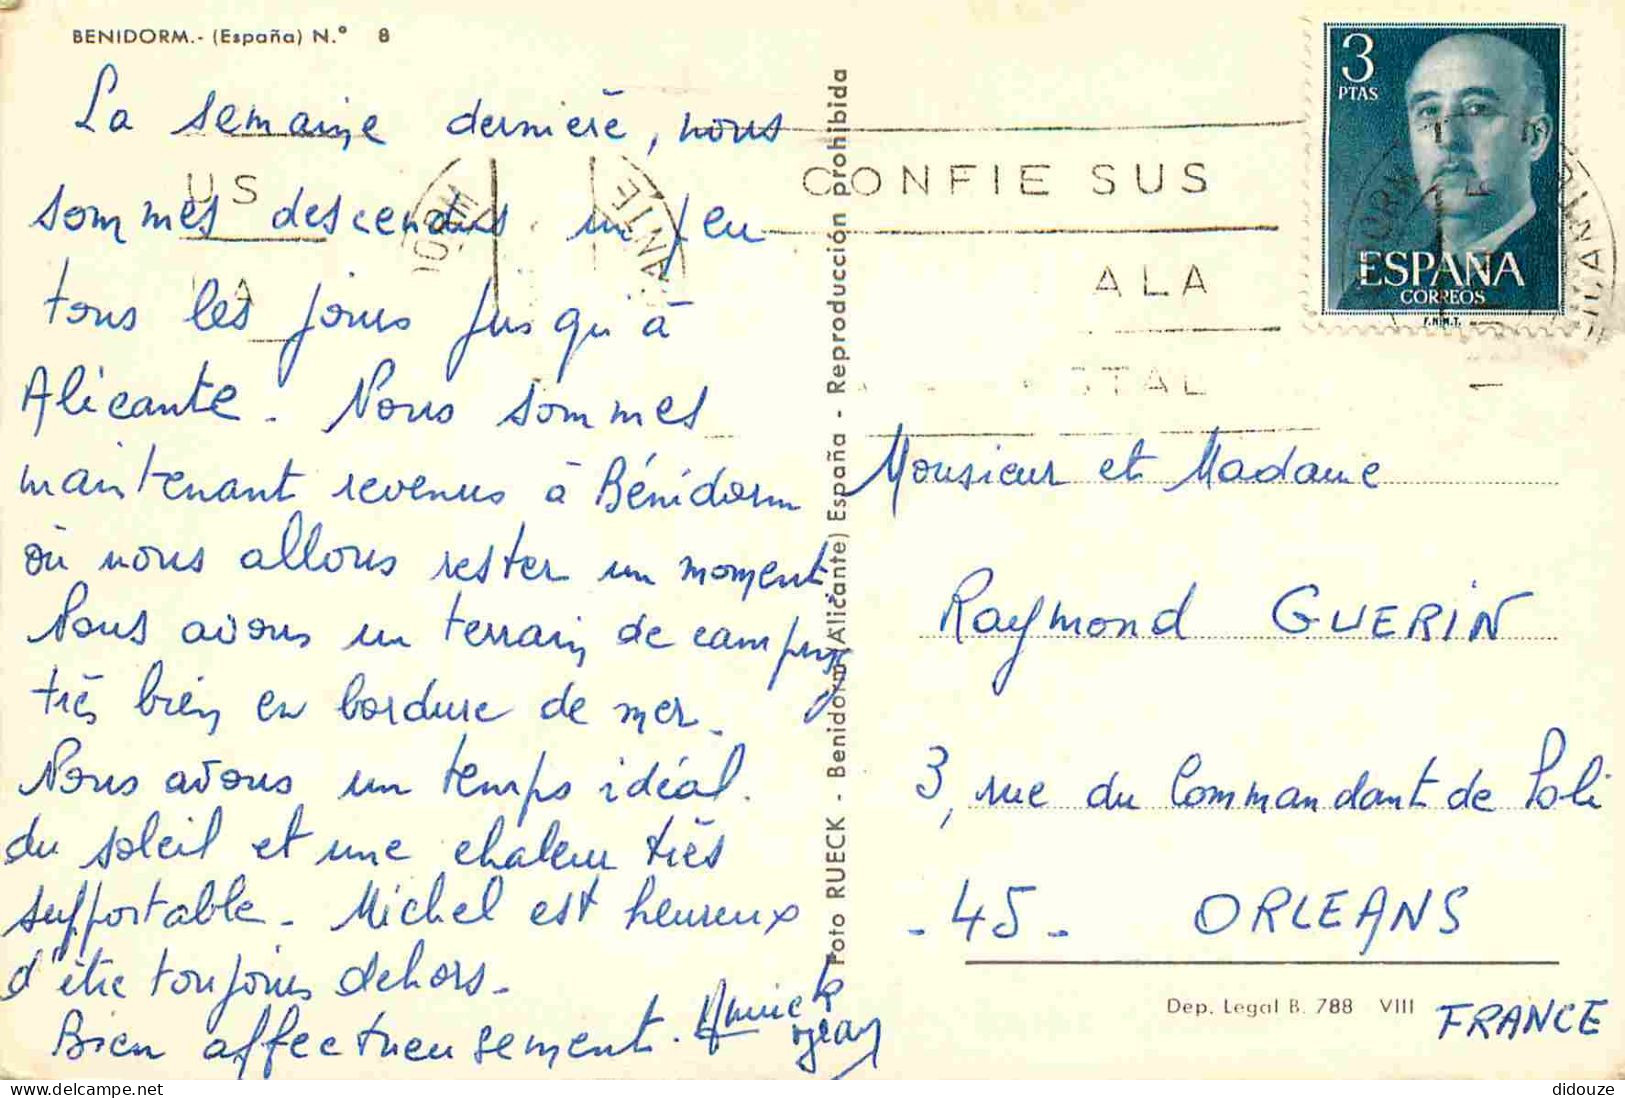 BENIDORM.- (España) N.º 8
La semaine dernière, nous
sommes descendus un peu
tous les jours jusqu'à
Alicante. Nous sommes
maintenant revenus à Bénidorm
où nous allons rester un moment.
Nous avons un terrain de camping
très bien en bordure de mer.
Nous avons un temps idéal.
du soleil et une chaleur très
supportable. Michel est heureux
d'être toujours dehors.
Bien affectueusement. Annick
Jean
Foto RUECK - Benidorm (Alicante) España - Reproducción prohibida
CONFIE SUS
A LA
STAL
US
A
3
PTAS
ESPAÑA
CORREOS
F.N.M.T.
Monsieur et Madame
Raymond GUERIN
3, rue du Commandant de Poli
- 45 - ORLEANS
Dep. Legal B. 788 VIII
FRANCE
didouze